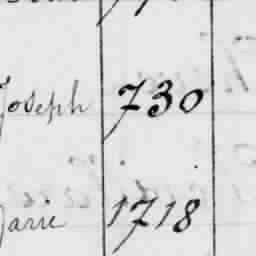 Joseph 730
Marie 1718